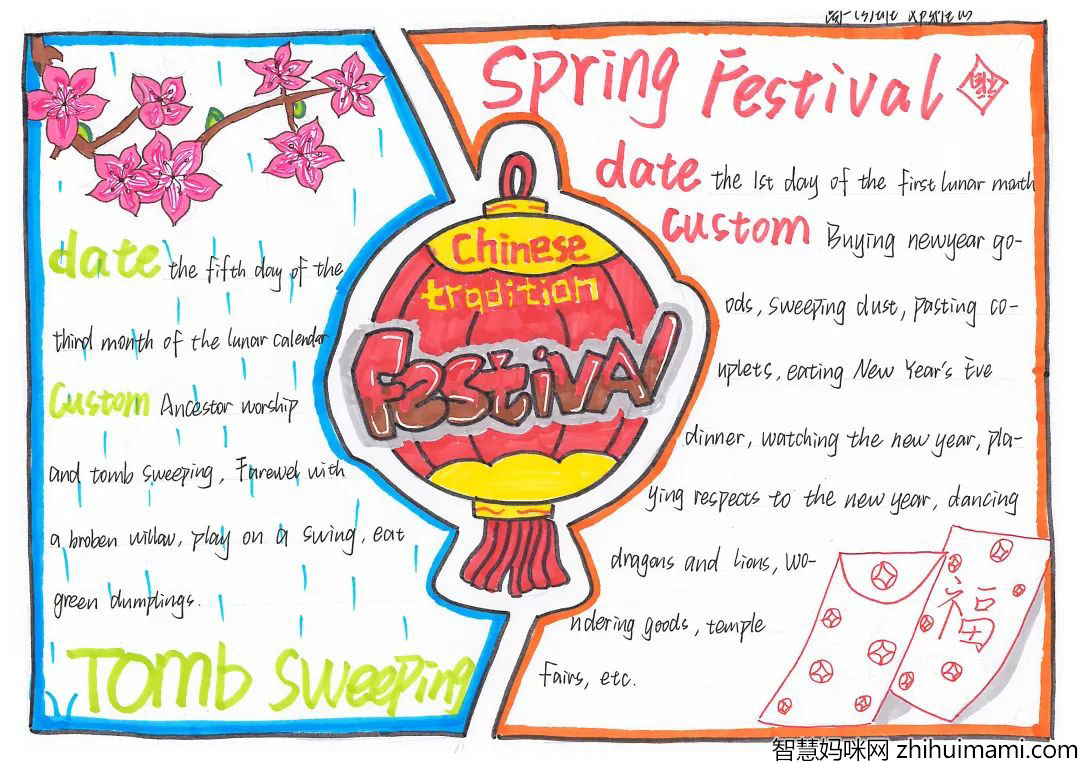 Spring Festival
date the 1st day of the first lunar month
custom Buying newyear go-
ods, sweeping dust, pasting co-
uplets, eating New Year's Eve
dinner, watching the new year, pla-
ying respects to the new year, dancing
dragons and lions, wo-
ndering goods, temple
Fairs, etc.
福
Chinese
tradition
Festival
date the fifth day of the
third month of the lunar calendar
Custom Ancestor worship
and tomb sweeping, Farewel with
a broben willow, play on a swing, eat
green dumplings.
Tomb Sweeping
智慧妈咪网 zhihuimami.com